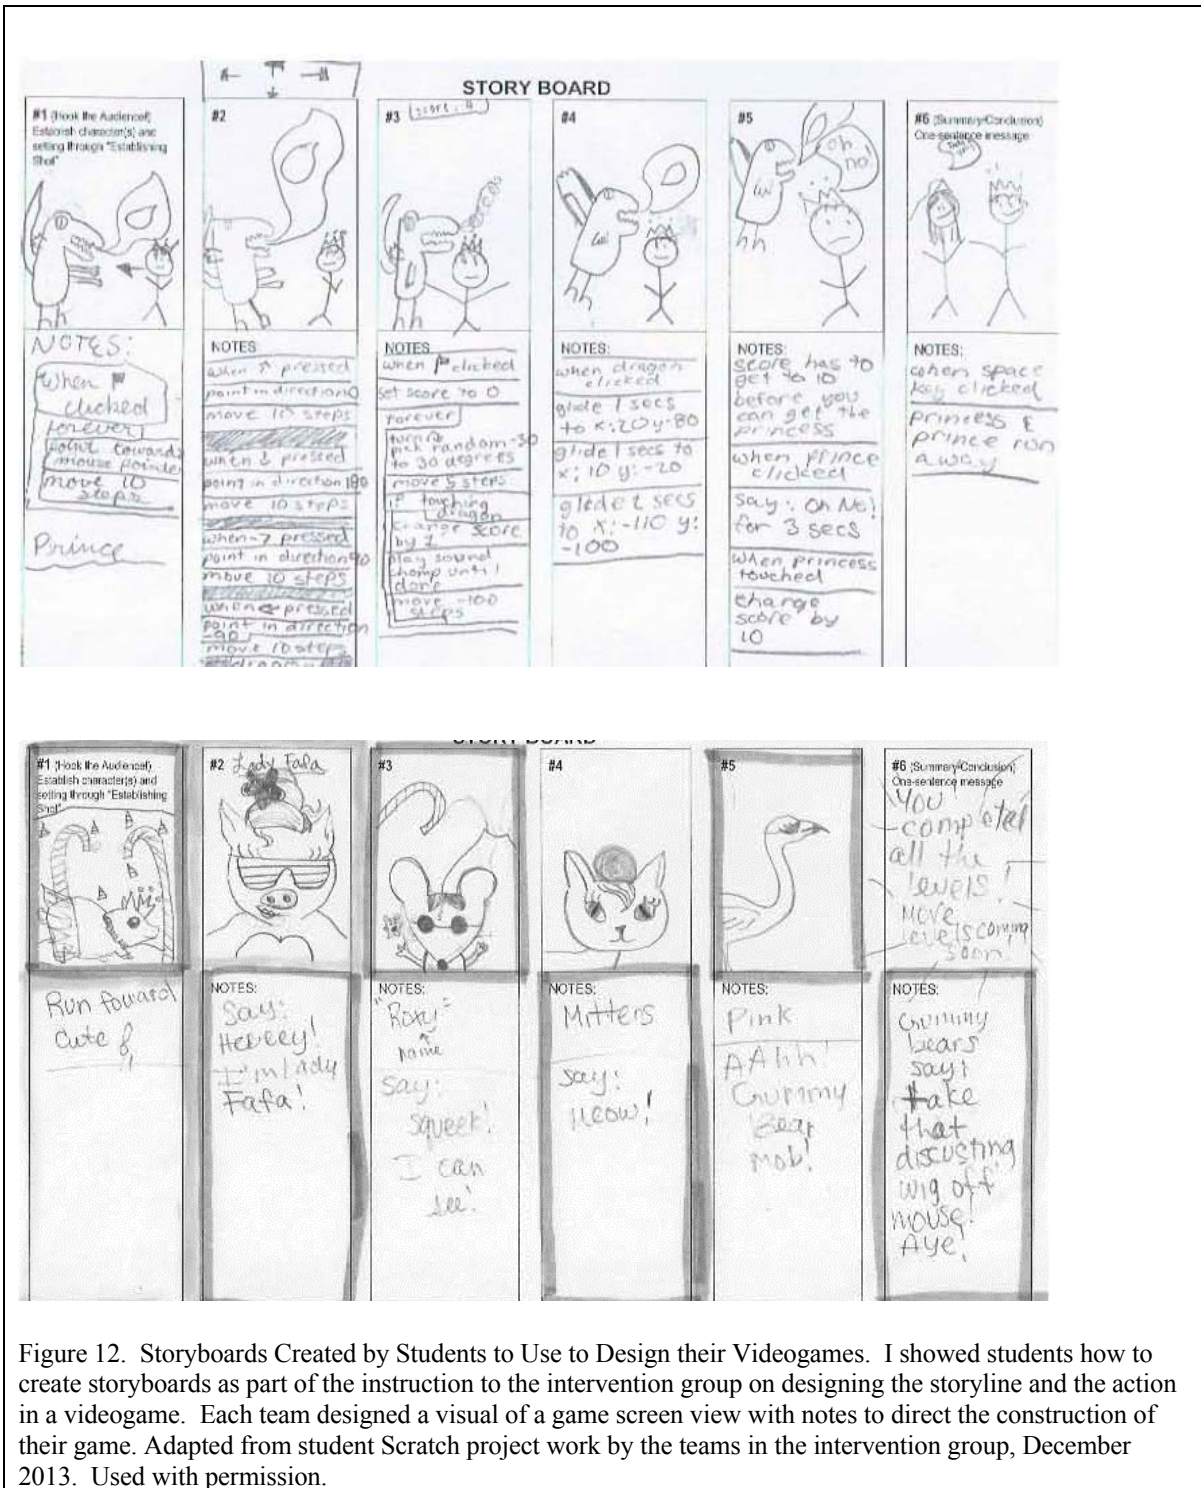 STORY BOARD
#1 (Hook the Audience!)
Establish character(s) and
setting through "Establishing
Shot"
#2
#3
score: 4
#4
#5
oh
no
#6 (Summary/Conclusion)
One-sentence message
NOTES:
When
clicked
forever
point towards
mouse pointer
move 10
steps
Prince
NOTES
when ↑ pressed
point in direction 0
move 10 steps
when ↓ pressed
point in direction 180
move 10 steps
when → pressed
point in direction 90
move 10 steps
when ← pressed
point in direction
-90
move 10 steps
dragon
NOTES
when clicked
set score to 0
forever
turn
pick random -30
to 30 degrees
move 5 steps
if touching
dragon
change score
by 1
play sound
chomp until
done
move -100
steps
NOTES:
when dragon
clicked
glide 1 secs
to x: 20 y: 80
glide 1 secs to
x: 10 y: -20
glide 2 secs
to x: -110 y:
-100
NOTES:
score has to
get to 10
before you
can get the
princess
when prince
clicked
say: Oh No!
for 3 secs
when princess
touched
change
score by
10
NOTES:
when space
key clicked
princess &
prince run
away
STORY BOARD
#1 (Hook the Audience!)
Establish character(s) and
setting through "Establishing
Shot"
#2 Lady Fafa
#3
#4
#5
#6 (Summary/Conclusion)
One-sentence message
You
completed
all the
levels!
More
levels coming
soon!
Run foward
Cute
NOTES:
Say:
Heeeey!
I'm Lady
Fafa!
NOTES:
"Roxy"
name
Say:
Squeek!
I can
see!
NOTES:
Mittens
say:
Meow!
NOTES:
Pink
AAhh!
Gummy
Bear
Mob!
NOTES:
Gummy
bears
say:
take
that
discusting
wig off
mouse!
Aye!
Figure 12. Storyboards Created by Students to Use to Design their Videogames. I showed students how to
create storyboards as part of the instruction to the intervention group on designing the storyline and the action
in a videogame. Each team designed a visual of a game screen view with notes to direct the construction of
their game. Adapted from student Scratch project work by the teams in the intervention group, December
2013. Used with permission.